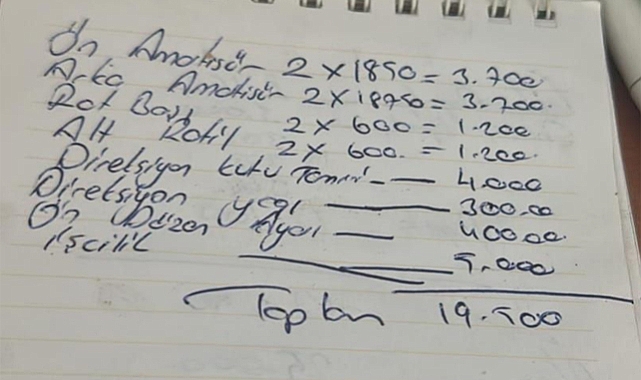 Ön Amotisör 2 x 1850 = 3.700
Arka Amotisör 2 x 1850 = 3.700.
Rot Başı 2 x 600 = 1.200
Alt Rotil 2 x 600. = 1.200.
Direksiyon kutu Tamiri - — 4.000
Direksiyon yağı — 300.00
Ön Düzen Ayarı — 400.00.
işcilik — 5.000
Toplam 19.500